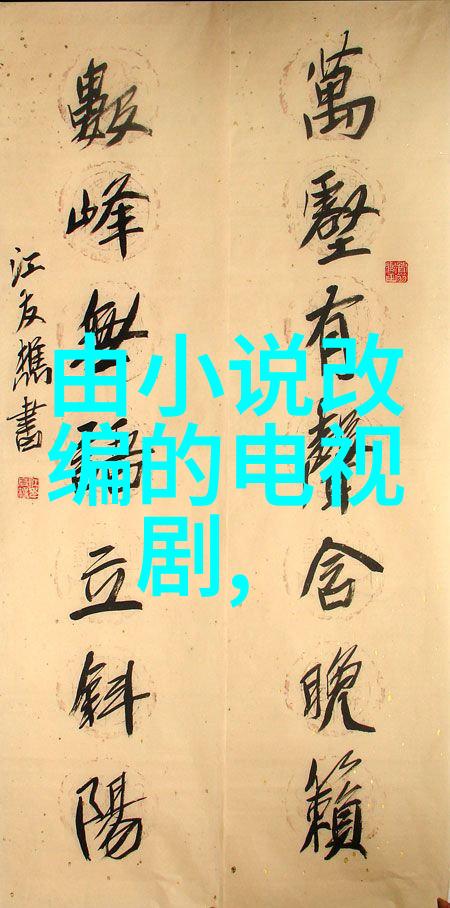 萬壑有聲含晚籟
數峰無語立斜陽
江友樵書
由小说改
编的电视
剧,